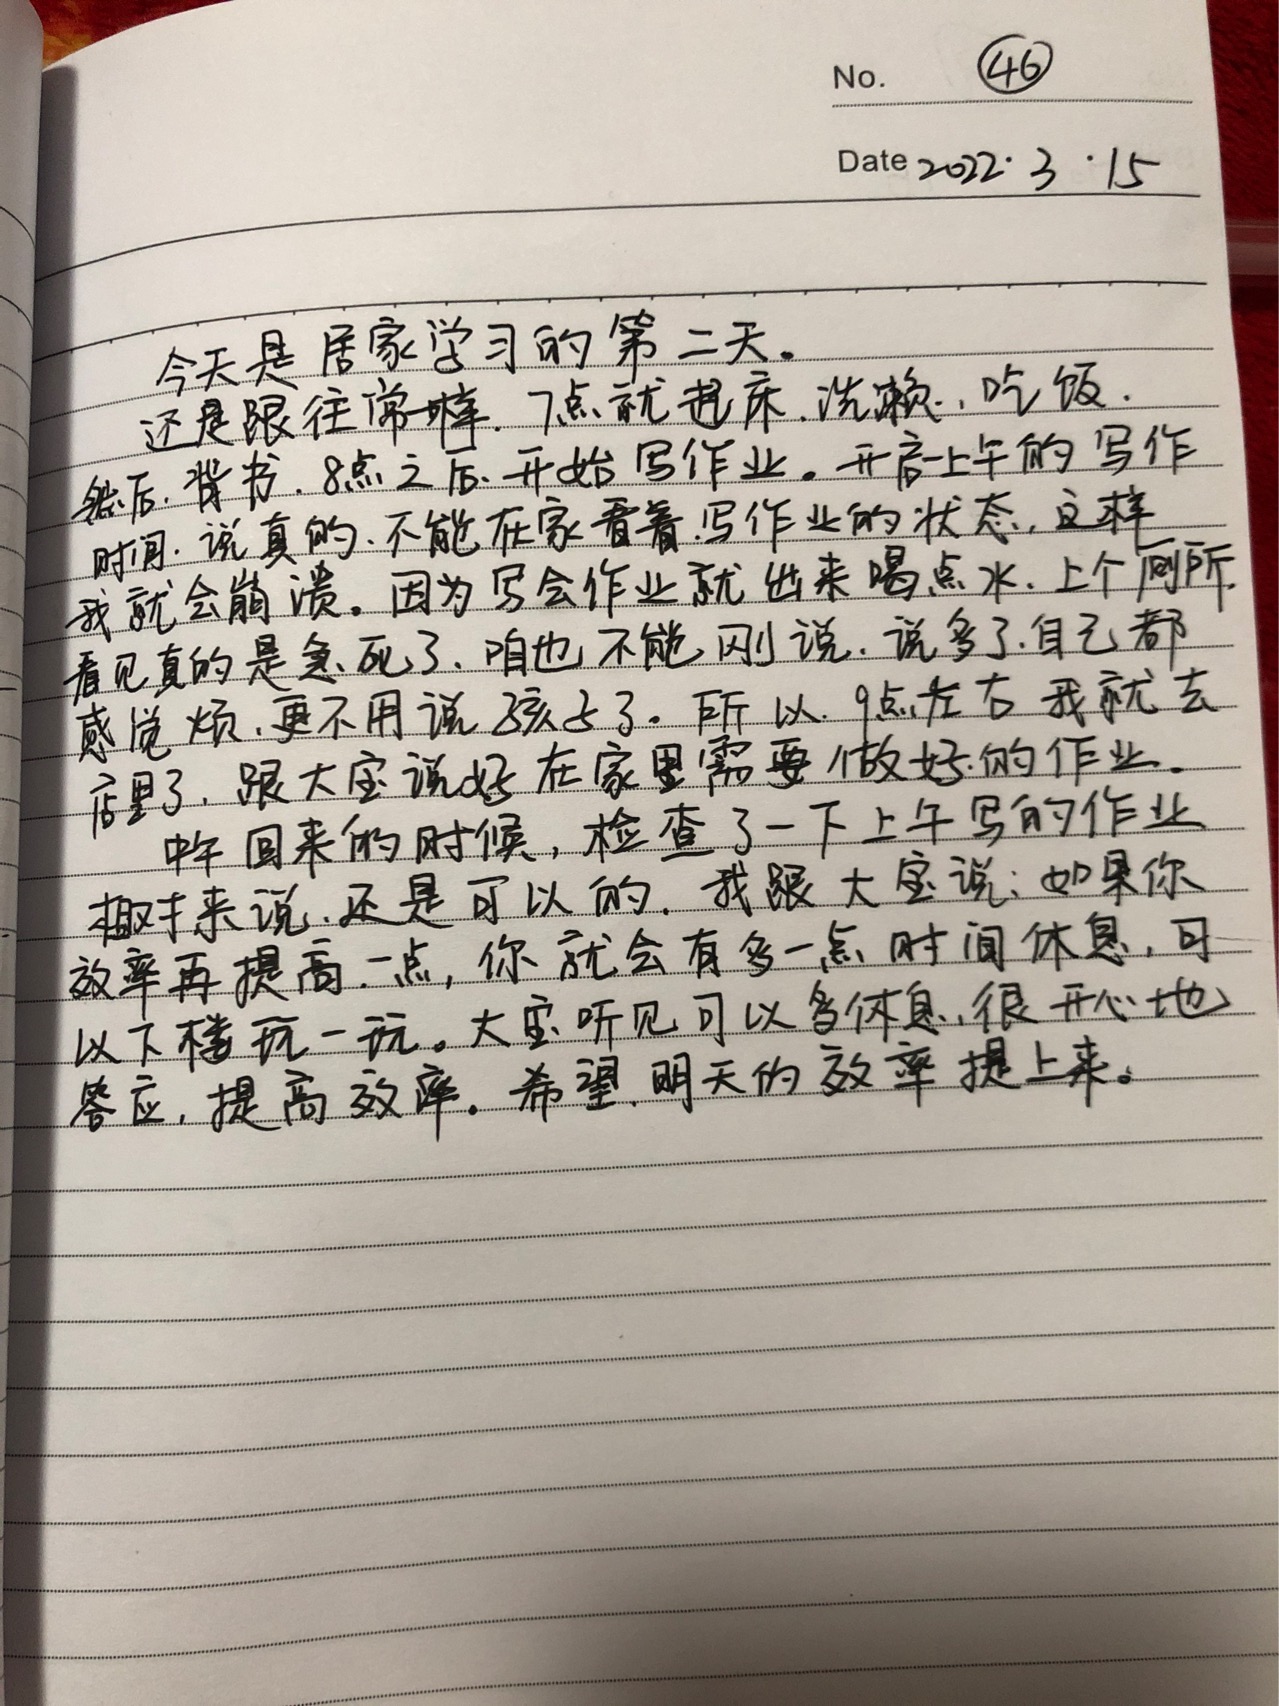 No. ㊻
Date 2022.3.15
今天是居家学习的第二天。
还是跟往常一样、7点就起床、洗漱、吃饭、
然后、背书、8点之后、开始写作业。开启上午的写作
时间、说真的、不能在家看着写作业的状态、这样
我就会崩溃。因为写会作业就出来喝点水、上个厕所、
看见真的是急死了、咱也不能刚说、说多了、自己都
感觉烦、更不用说孩子了。所以、9点左右我就去
店里了、跟大宝说好在家里需要做好的作业。
中午回来的时候，检查了一下上午写的作业
相对来说、还是可以的、我跟大宝说：如果你
效率再提高一点，你就会有多一点时间休息，可
以下楼玩一玩。大宝听见可以多休息、很开心地
答应，提高效率。希望明天的效率提上来。